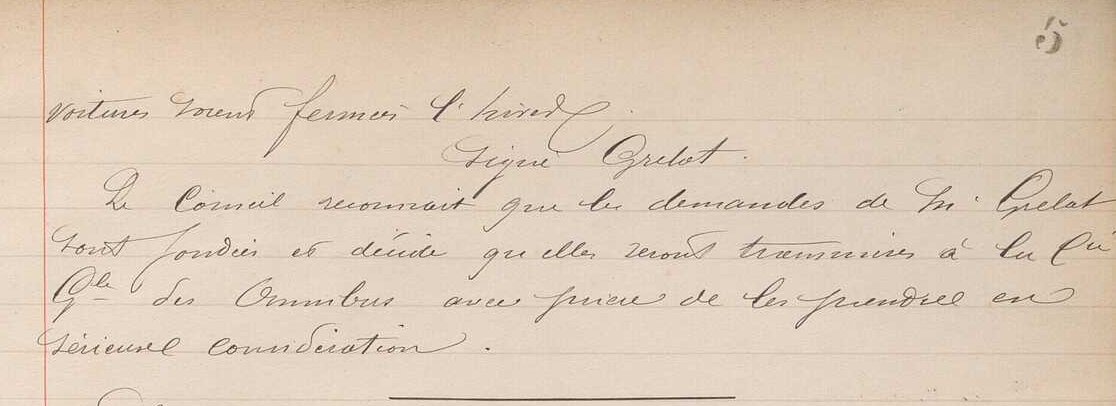 5
voitures soient fermées l'hiver.
Signé Grelot.
Le Conseil reconnait que les demandes de M. Grelot
sont fondées et décide qu'elles seront transmises à la Cie
Gle des Omnibus avec prière de les prendre en
sérieuse considération.